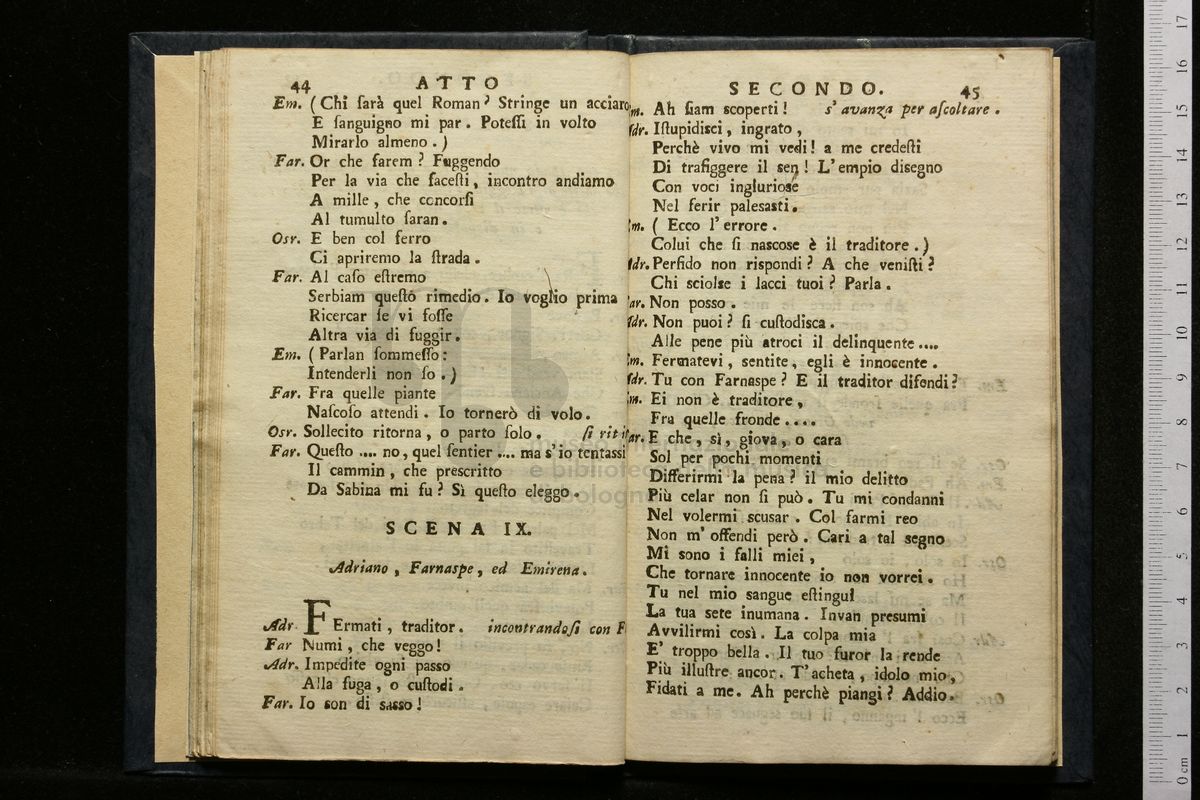 44 ATTO
Em. (Chi ſarà quel Roman? Stringe un acciaro
E ſanguigno mi par. Poteſſi in volto
Mirarlo almeno.)
Far. Or che farem? Fuggendo
Per la via che faceſti, incontro andiamo
A mille, che concorſi
Al tumulto ſaran.
Osr. E ben col ferro
Ci apriremo la ſtrada.
Far. Al caſo eſtremo
Serbiam queſto rimedio. Io voglio prima
Ricercar ſe vi foſſe
Altra via di fuggir.
Em. (Parlan ſommeſſo:
Intenderli non ſo.)
Far. Fra quelle piante
Naſcoſo attendi. Io tornerò di volo.
Osr. Sollecito ritorna, o parto ſolo. ſi riti
Far. Queſto .... no, quel ſentier .... ma s'io tentassi
Il cammin, che prescritto
Da Sabina mi fu? Sì queſto eleggo.
SCENA IX.
Adriano, Farnaspe, ed Emirena.
Adr. FErmati, traditor. incontrandoſi con F
Far Numi, che veggo!
Adr. Impedite ogni passo
Alla fuga, o cuſtodi.
Far. Io son di sasso!
SECONDO. 45
m. Ah ſiam scoperti! s'avanza per aſcoltare.
dr. Iſtupidisci, ingrato,
Perchè vivo mi vedi! a me credeſti
Di trafiggere il sen! L'empio disegno
Con voci ingluriose
Nel ferir palesasti.
m. (Ecco l'errore.
Colui che ſi nascose è il traditore.)
dr. Perfido non rispondi? A che veniſti?
Chi sciolse i lacci tuoi? Parla.
ar. Non posso.
dr. Non puoi? ſi cuſtodisca.
Alle pene più atroci il delinquente ....
m. Fermatevi, sentite, egli è innocente.
dr. Tu con Farnaspe? E il traditor difendi?
m. Ei non è traditore,
Fra quelle fronde ....
ar. E che, sì, giova, o cara
Sol per pochi momenti
Differirmi la pena? il mio delitto
Più celar non ſi può. Tu mi condanni
Nel volermi scusar. Col farmi reo
Non m'offendi però. Cari a tal segno
Mi sono i falli miei,
Che tornare innocente io non vorrei.
Tu nel mio sangue eſtingui
La tua sete inumana. Invan presumi
Avvilirmi così. La colpa mia
E' troppo bella. Il tuo furor la rende
Più illuſtre ancor. T'acheta, idolo mio,
Fidati a me. Ah perchè piangi? Addio.
museo internazionale
e biblioteca della musica
di bologna
0 cm 1 2 3 4 5 6 7 8 9 10 11 12 13 14 15 16 17